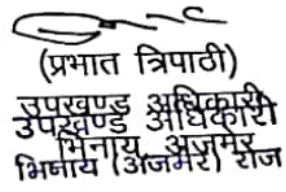 (प्रभात त्रिपाठी)
उपखण्ड अधिकारी
उपखण्ड अधिकारी
भिनाय अजमेर
भिणाय (अजमेर) राज